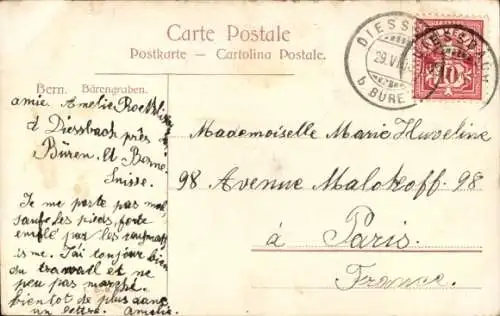 Carte Postale
Postkarte — Cartolina Postale.
Bern. Bärengraben.
DIESSBACH
29.VI
b. BÜREN
10
amie. Amelie
d Diessbach près
Büren. Ct Berne
Suisse.
Je me porte pas mal
saufe les pieds forte
enflé par les rhumat
isme. J'ai toujour bien
du travail et ne
peu pas marché.
bientot de plus dans
un lettre. Amelie.
Mademoiselle Marie Huveline
98 Avenue Malokoff. 98
à Paris.
France.